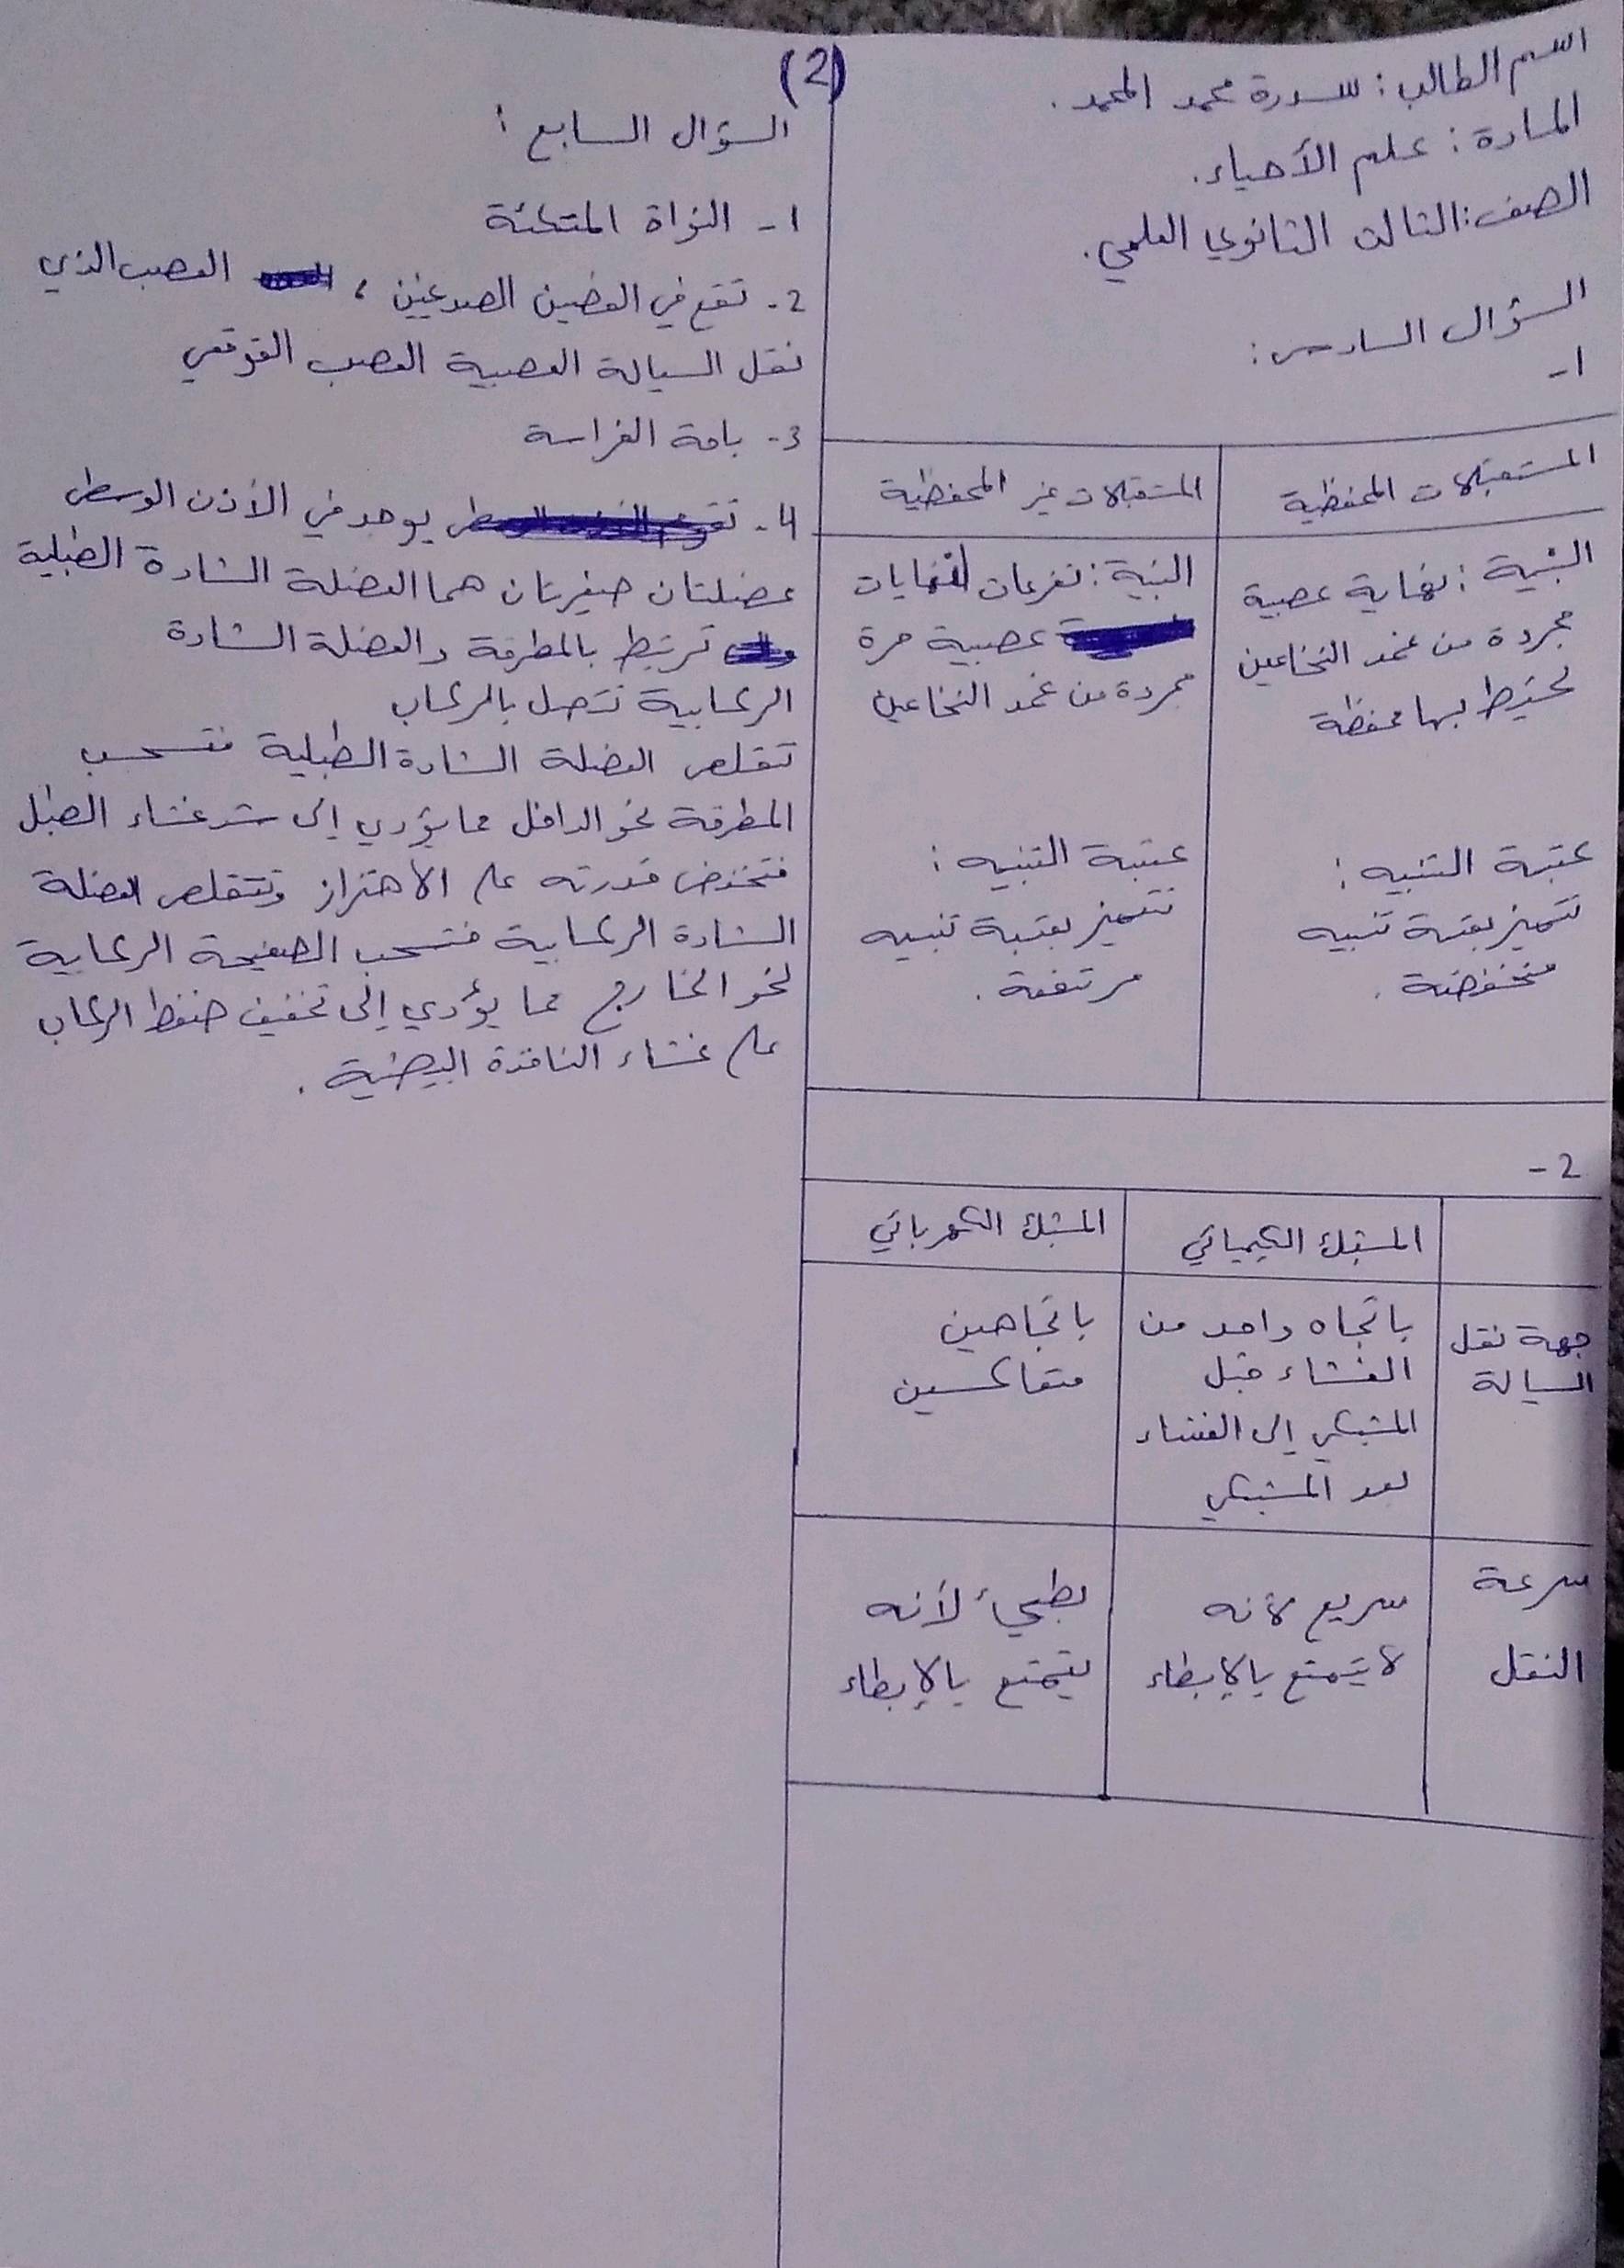 (2)
اسم الطالب: سدرة محمد المحمد.
المادة: علم الأحياء.
الصف: الثالث الثانوي العلمي.
السؤال السادس:
1-
المستقبلات المحفظية
المستقبلات غير المحفظية
البنية: نهاية عصبية
مجردة من غمد النخاعين
تحيط بها محفظة
البنية: تفرعات لنهايات
عصبية حرة
مجردة من غمد النخاعين
عتبة التنبيه:
تتميز بعتبة تنبيه
منخفضة.
عتبة التنبيه:
تتميز بعتبة تنبيه
مرتفعة.
2-
المشبك الكيميائي
المشبك الكهربائي
جهة نقل
السيالة
باتجاه واحد من
الغشاء قبل
المشبكي إلى الغشاء
بعد المشبكي
باتجاهين
متعاكسين
سرعة
النقل
سريع لأنه
لا يتمتع بالإبطاء
بطيئ لأنه
يتمتع بالإبطاء
السؤال السابع:
1- النواة المتكئة
2- تقع في الفصين الصدغيين، العصب الذي
نقل السيالة العصبية العصب القوقعي
3- باحة الفراسة
4- يوجد في الأذن الوسطى
عضلتان صغيرتان هما العضلة الشادة الطبلية
ترتبط بالمطرقة والعضلة الشادة
الركابية تتصل بالركاب
تتقلص العضلة الشادة الطبلية فتسحب
المطرقة نحو الداخل مما يؤدي إلى شد غشاء الطبل
فتنخفض قدرته على الاهتزاز وتتقلص العضلة
الشادة الركابية فتسحب الصفيحة الركابية
نحو الخارج مما يؤدي إلى تخفيف ضغط الركاب
على غشاء النافذة البيضية.